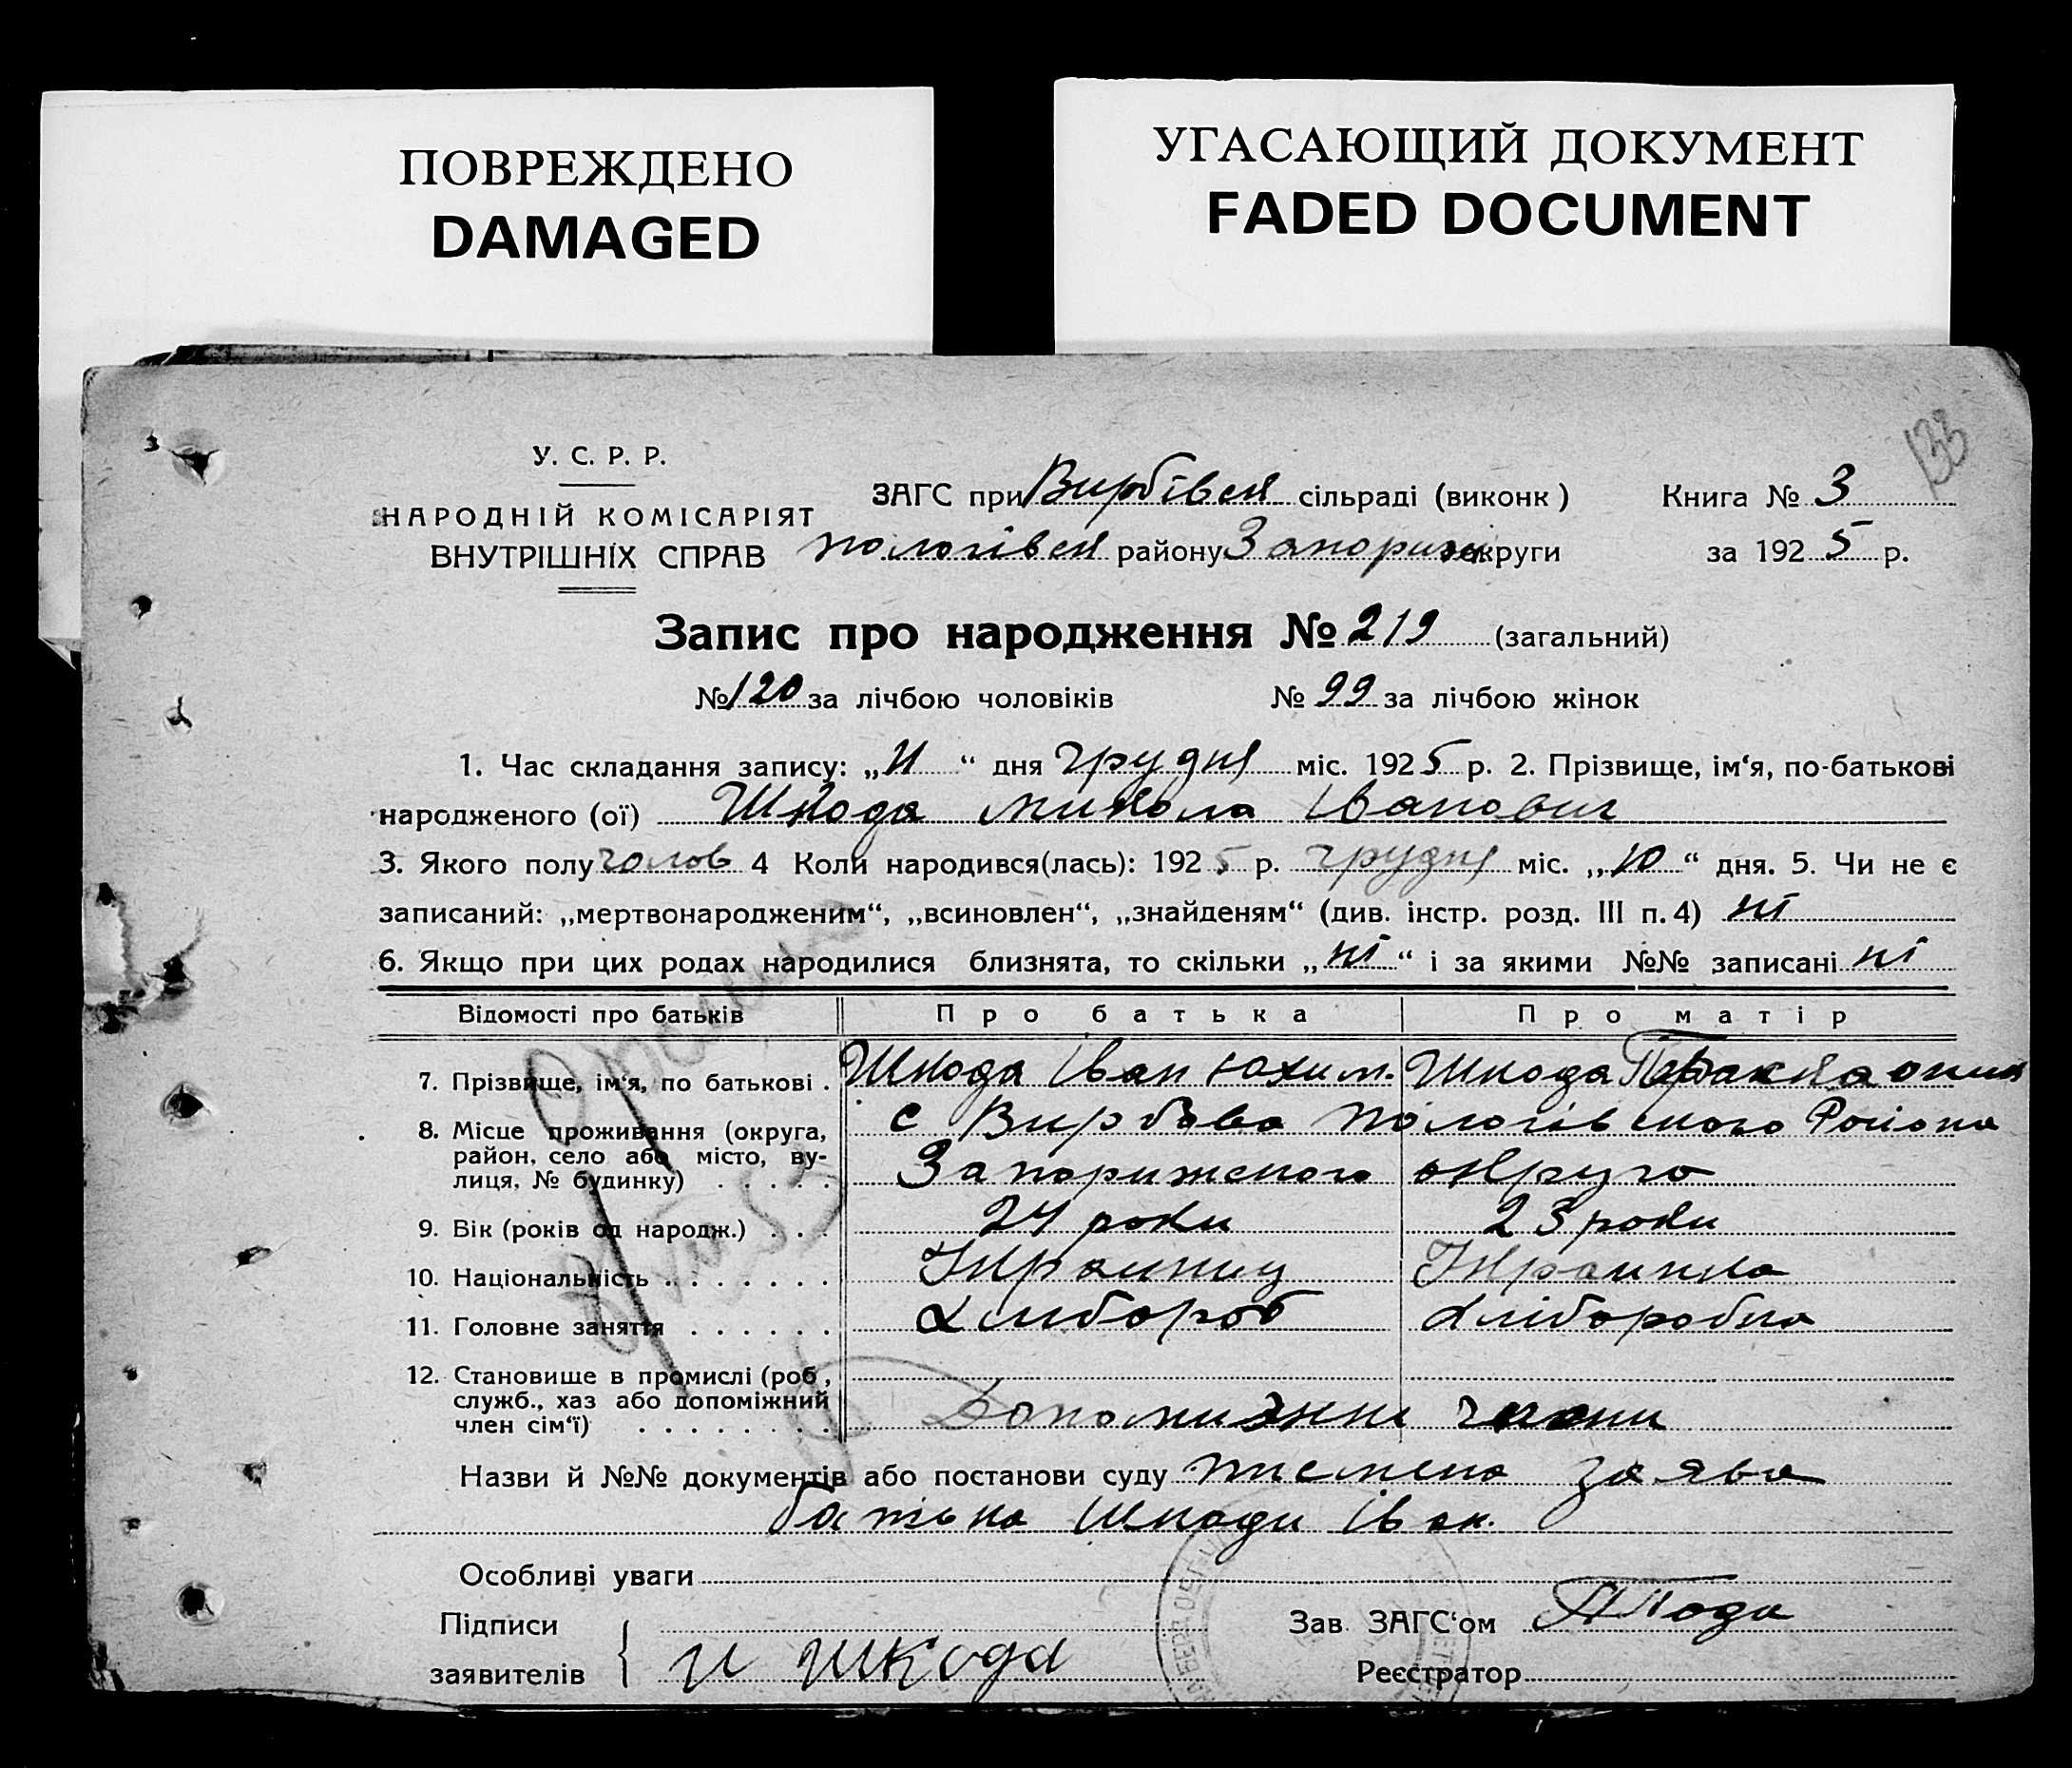 ПОВРЕЖДЕНО
DAMAGED
УГАСАЮЩИЙ ДОКУМЕНТ
FADED DOCUMENT
133
У. С. Р. Р.
НАРОДНІЙ КОМІСАРІЯТ
ВНУТРІШНІХ СПРАВ
ЗАГС при Вирбівск сільраді (виконк)
Пологівск району Запориж округи
Книга № 3
за 1925 р.
Запис про народження № 219 (загальний)
№ 120 за лічбою чоловіків № 99 за лічбою жінок
1. Час складання запису: „11“ дня грудня міс. 1925 р. 2. Прізвище, ім‘я, по-батькові
народженого (ої) Шкода Микола Іванович
3. Якого полу чолов 4 Коли народився(лась): 1925 р. грудня міс. „10“ дня. 5. Чи не є
записаний: „мертвонародженим“, „всиновлен“, „знайденям“ (див. інстр. розд. III п. 4) ні
6. Якщо при цих родах народилися близнята, то скільки „ні“ і за якими №№ записані ні
Відомості про батьків Про батька Про матір
7. Прізвище, ім‘я, по батькові . Шкода Іван Юхим. Шкода
8. Місце проживання (округа, район, село або місто, вулиця, № будинку) . . . . . с Вирбова Пологівского Района
Запорижского округо
9. Вік (років од народж.) . . . 24 роки 23 роки
10. Національність . . . . . . . Украинец Украинка
11. Головне заняття . . . . . . Хлибороб Хліборобка
12. Становище в промислі (роб, служб., хаз або допоміжний член сім‘ї) . . . . . . . . Допомижни члени
Назви й №№ документів або постанови суду писмена заява
батька Шкоди Іван.
Особливі уваги
Підписи
заявителів И Шкода
Зав ЗАГС‘ом
Реєстратор